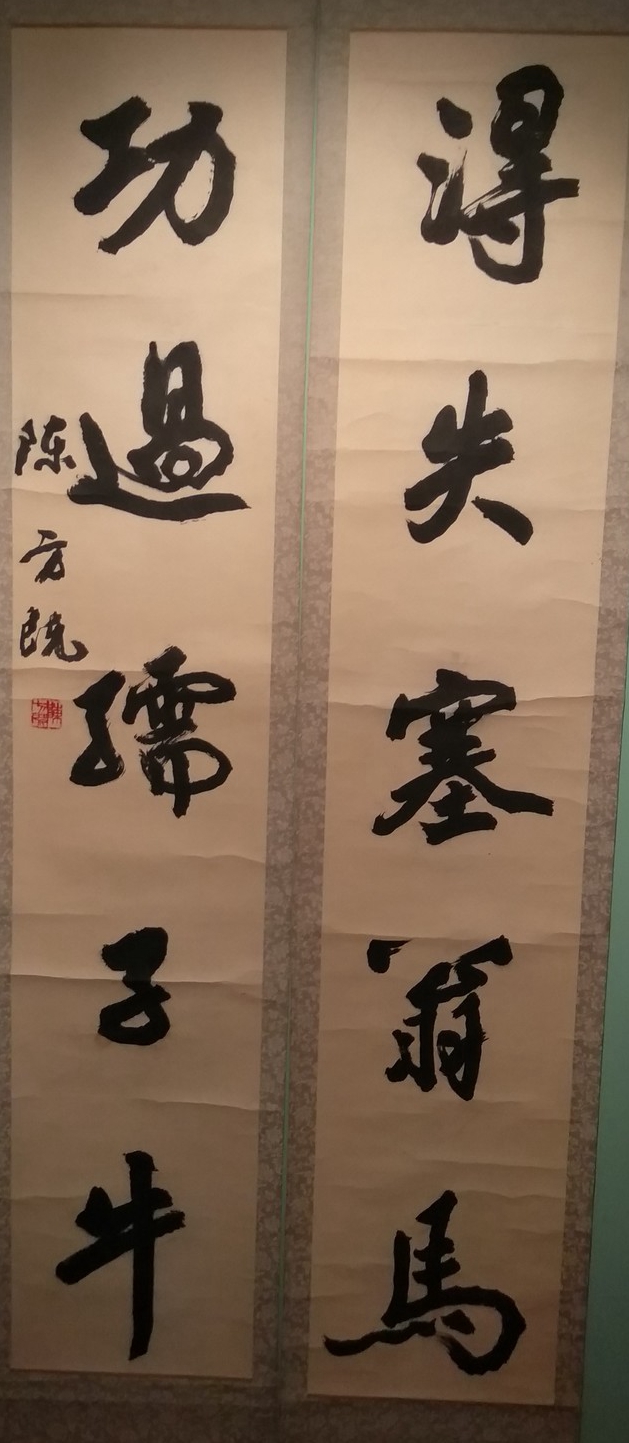 得失塞翁馬
功過孺子牛
陈方既